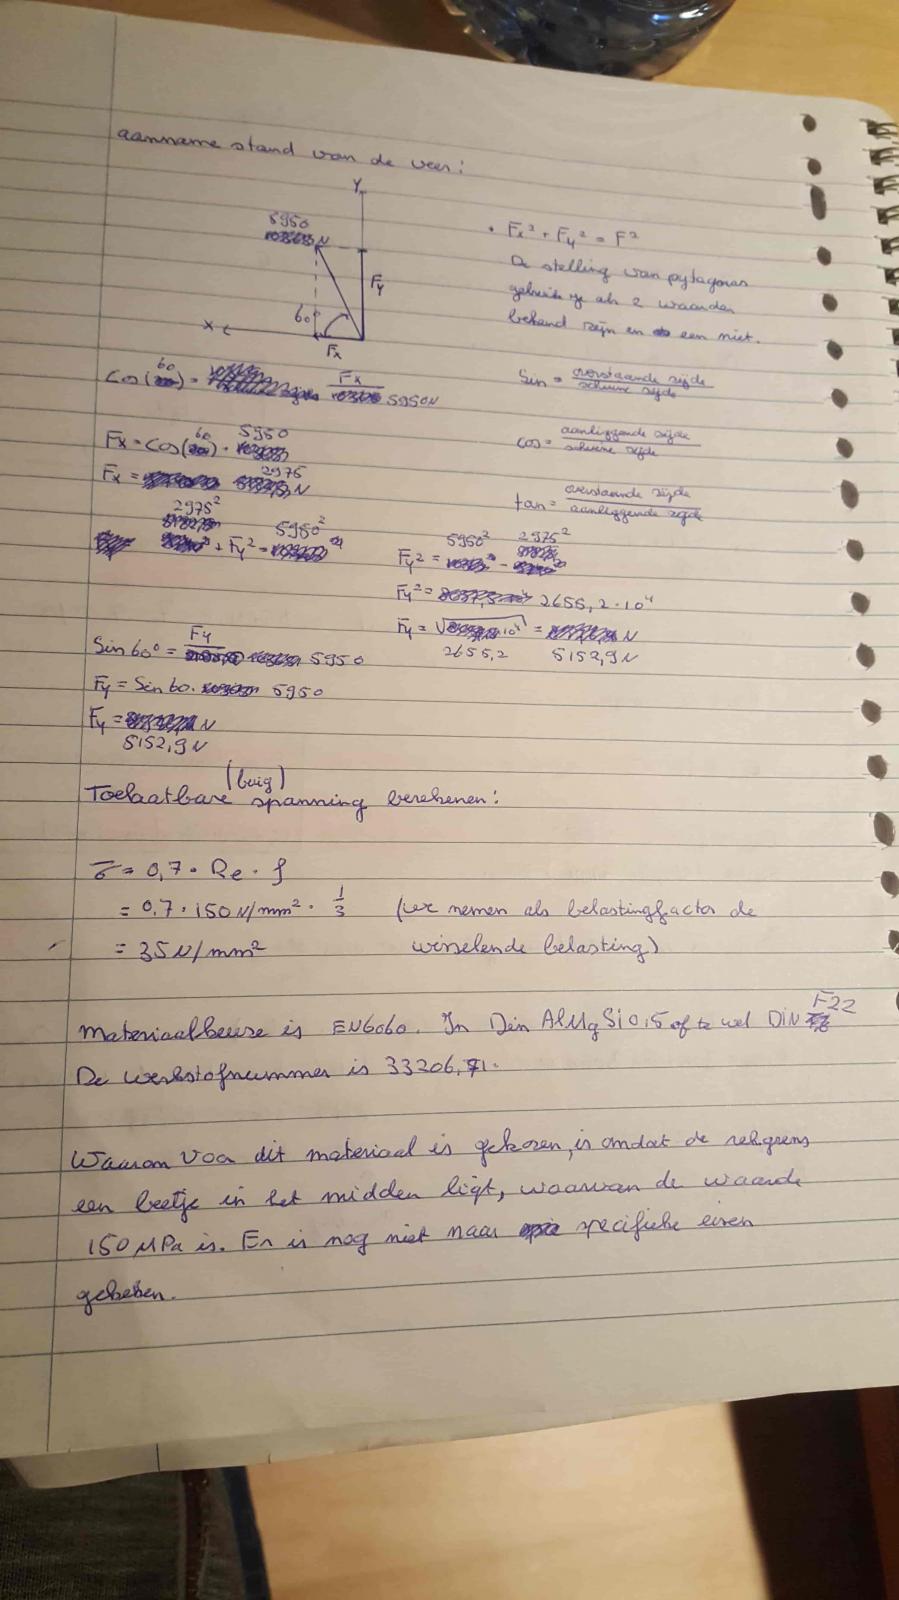 aanname stand van de veer:
Y
5950
N
Fy
60°
X
Fx
• Fx² + Fy² = F²
De stelling van pytagoras
gebruik je als 2 waarden
bekend zijn en een niet.
Cos(60) = Fx / 5950N
Sin = overstaande zijde / schuine zijde
Fx = cos(60) · 5950
cos = aanliggende zijde / schuine zijde
Fx = 2975 N
tan = overstaande zijde / aanliggende zijde
2975² + Fy² = 5950²
Fy² = 5950² - 2975²
Fy² = 2655,2 · 10⁴
Fy = √ 2655,2 · 10⁴ = 5152,9 N
Sin 60° = Fy / 5950
Fy = Sin 60 · 5950
Fy = 5152,9 N
Toelaatbare (buig) spanning berekenen:
σ = 0,7 · Re · f
= 0,7 · 150 N/mm² · 1/3 (we nemen als belastingfactor de
= 35 N/mm² wisselende belasting)
Materiaalkeuze is EN6060. In Din AlMgSi0,5 of te wel DIN F22
De werkstofnummer is 33206,71.
Waarom voor dit materiaal is gekozen, is omdat de rekgrens
een beetje in het midden ligt, waarvan de waarde
150 MPa is. Er is nog niet naar specifieke eisen
gekeken.